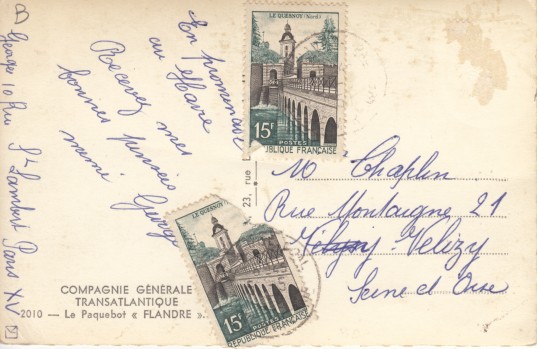 B
Georges 10 Rue St Lambert Paris XV
En promenade
au Havre
Recevez mes
bonnes pensées
mimi George
COMPAGNIE GÉNÉRALE
TRANSATLANTIQUE
2010 — Le Paquebot « FLANDRE ».
23, rue
LE QUESNOY (Nord)
15F
POSTES
RÉPUBLIQUE FRANÇAISE
LE QUESNOY
15F
POSTES
RÉPUBLIQUE FRANÇAISE
M Chaplin
Rue Montaigne 21
Velizy
Seine et Oise